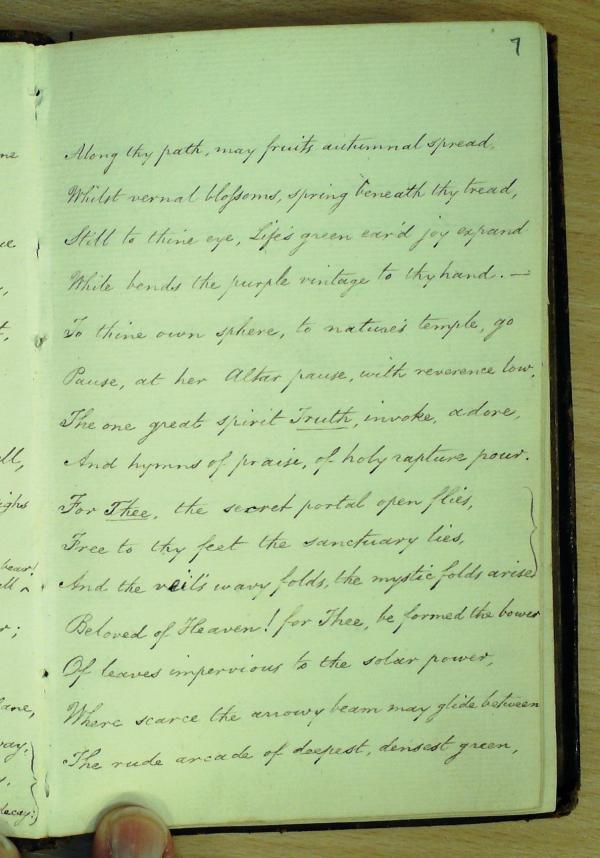 7
Along thy path, may fruits autumnal spread,
Whilst vernal bloſsoms, spring beneath thy tread,
Still to thine eye, Life's green ear'd joy expand
While bends the purple vintage to thy hand. —
To thine own sphere, to nature's temple, go
Pause, at her Altar pause, with reverence low,
The one great spirit Truth, invoke, adore,
And hymns of praise, of holy rapture pour.
For Thee, the secret portal open flies,
Free to thy feet the sanctuary lies,
And the veil's wavy folds, the mystic folds arise
Beloved of Heaven! for Thee, be formed the bower
Of leaves impervious to the solar power,
Where scarce the arrowy beam may glide between
The rude arcade of deepest, densest green,